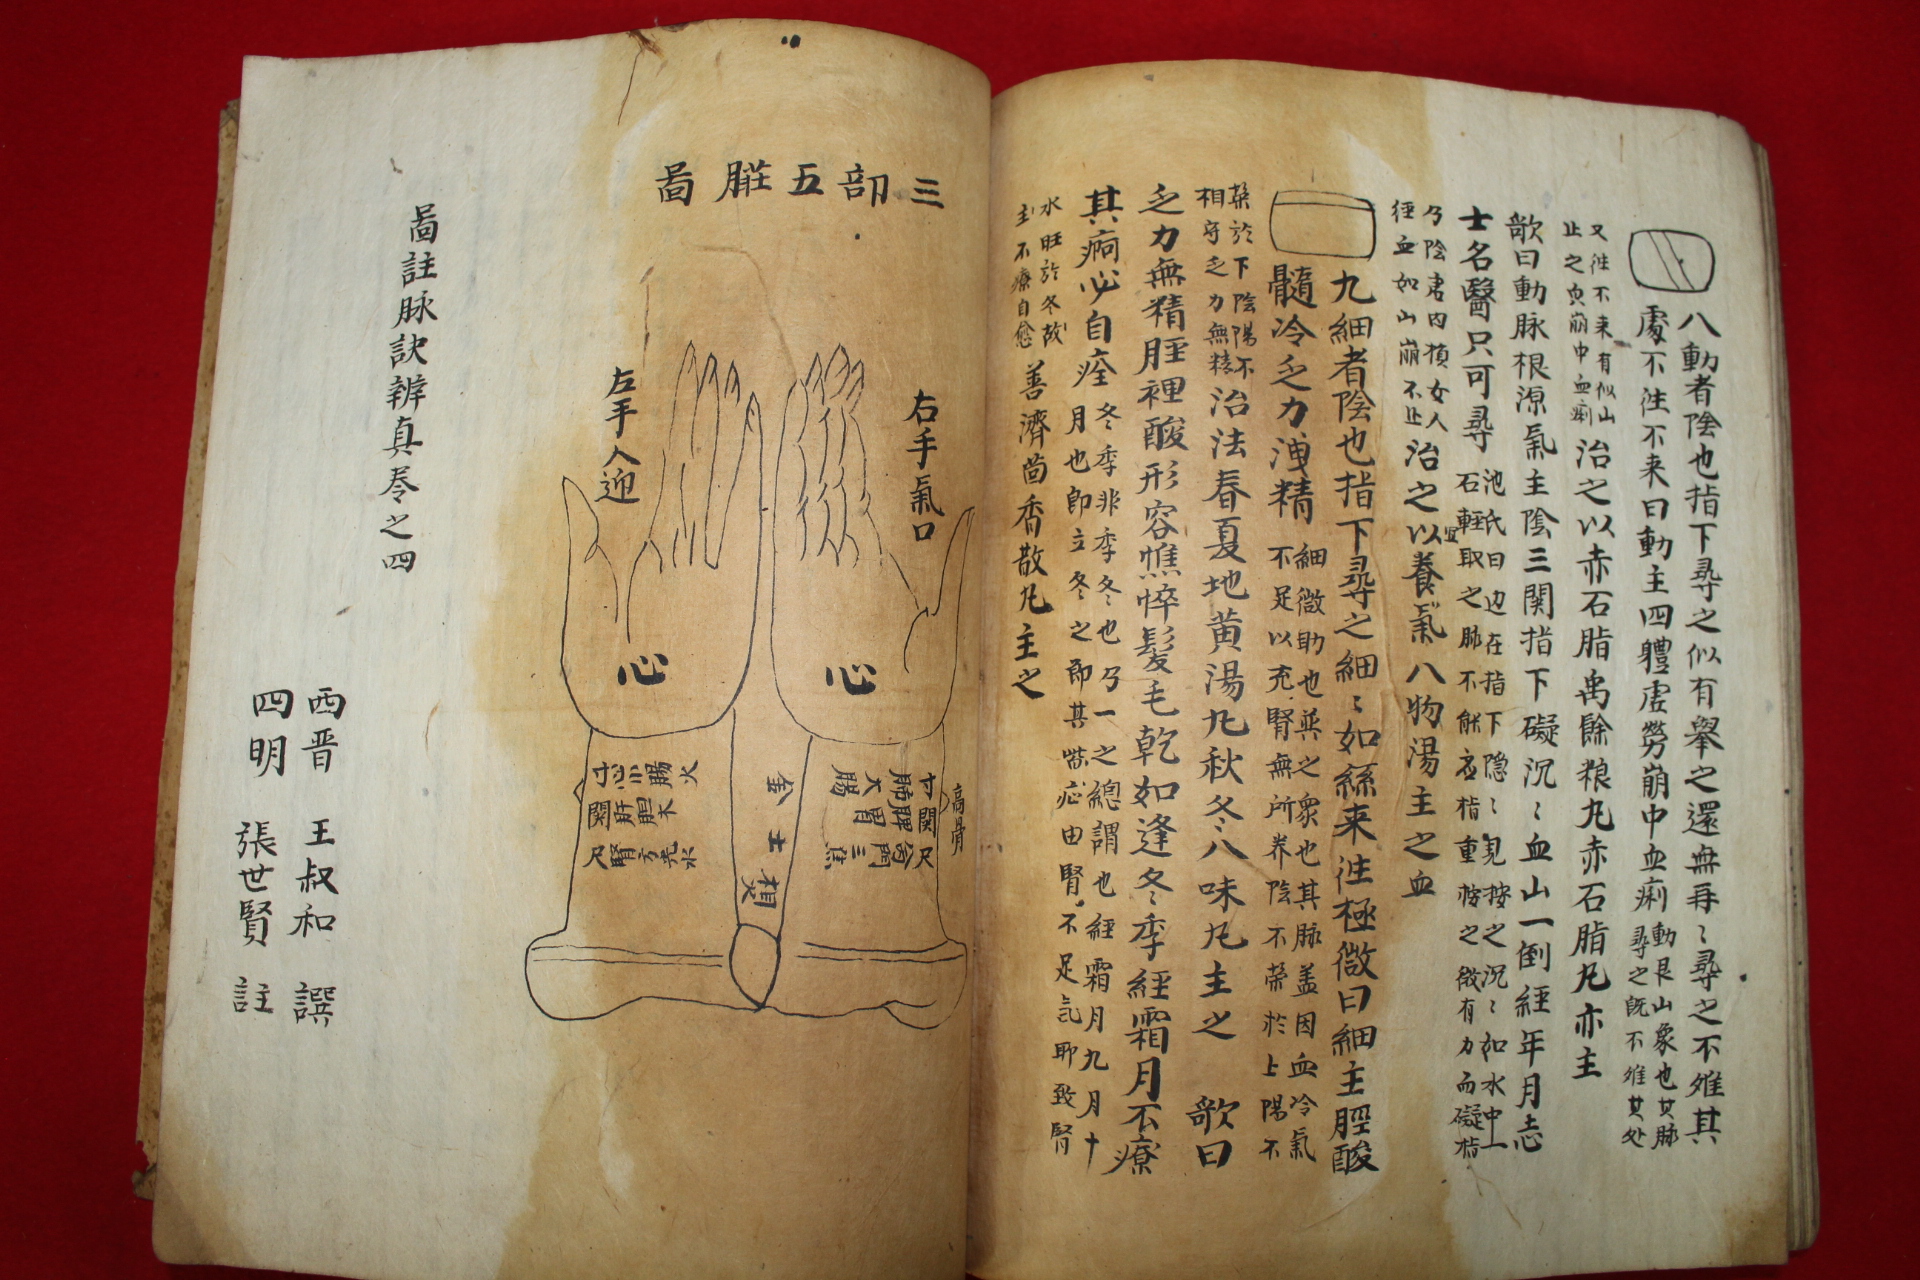 八動者陰也指下尋之似有舉之還無再〻尋之不離其
處不徃不来曰動主四體虛勞崩中血痢
動艮山象也其脉
尋之旣不離其处
又徃不来有似山
止之皃崩中血痢
治之以赤石脂禹餘粮丸赤石脂丸亦主
歌曰動脉根源氣主陰三関指下礙沉〻血山一倒經年月志
士名醫只可尋
池氏曰边在指下隱〻見按之沉〻如水中一
石輕取之脉不能应指重按之微有力而礙指
乃陰虛内損女人
經血如山崩不止
治之以養氣八物湯主之血
九細者陰也指下尋之細〻如絲来徃極微曰細主脛酸
髓冷乏力洩精
細微助也兵之象也其脉盖因血冷氣
不足以充腎無所养陰不荣於上陽不
荣於下陰陽不
相守乏力無精
治法春夏地黄湯丸秋冬八味丸主之 歌曰
乏力無精脛裡酸形容憔悴髮毛乾如逢冬季經霜月不療
其痾必自痊
冬季非季冬也乃一之總謂也經霜月九月十
月也即立冬之節其 症由腎不足氣耶致腎
水旺於冬故
主不療自愈
善濟茴香散丸主之
三部五臟圖
右手氣口
左手人迎
心
心
高骨
寸関尺
肺脾命門
大腸胃三焦
金土相火
寸関尺
心肝腎
小腸胆膀光
火木水
圖註脉訣辨真卷之四
西晋 王叔和 譔
四明 張世賢 註